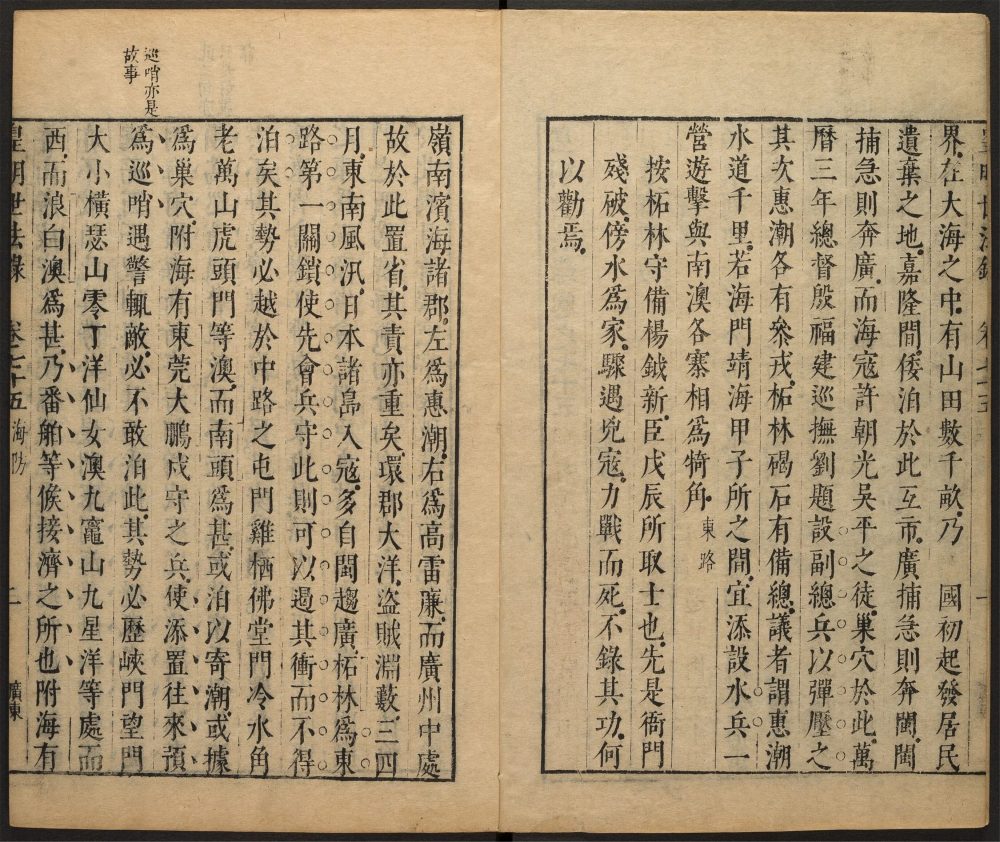 皇明世法錄 卷七十五 一
界在大海之中有山田數千畝乃 國初起發居民
遺棄之地嘉隆間倭泊於此互市廣捕急則奔閩閩
捕急則奔廣而海寇許朝光吳平之徒巢穴於此萬
曆三年總督殷福建巡撫劉題設副總兵以彈壓之
其次惠潮各有叅戎柘林碣石有備總議者謂惠潮
水道千里若海門靖海甲子所之間宜添設水兵一
營遊擊與南澳各寨相爲犄角 東路
按柘林守備楊鉞新臣戊辰所取士也先是衙門
殘破傍水爲家驟遇兇寇力戰而死不錄其功何
以勸焉
巡哨亦是
故事
嶺南濱海諸郡左爲惠潮右爲高雷廉而廣州中處
故於此置省其責亦重矣環郡大洋盜賊淵藪三四
月東南風汛日本諸島入寇多自閩趨廣柘林爲東
路第一關鎖使先會兵守此則可以遏其衝而不得
泊矣其勢必越於中路之屯門雞栖佛堂門冷水角
老萬山虎頭門等澳而南頭爲甚或泊以寄潮或據
爲巢穴附海有東莞大鵬戍守之兵使添置往來預
爲巡哨遇警輒敵必不敢泊此其勢必歷峽門望門
大小橫瑟山零丁洋仙女澳九竈山九星洋等處而
西而浪白澳爲甚乃番舶等候接濟之所也附海有
皇明世法錄 卷七十五 海防 二 廣東